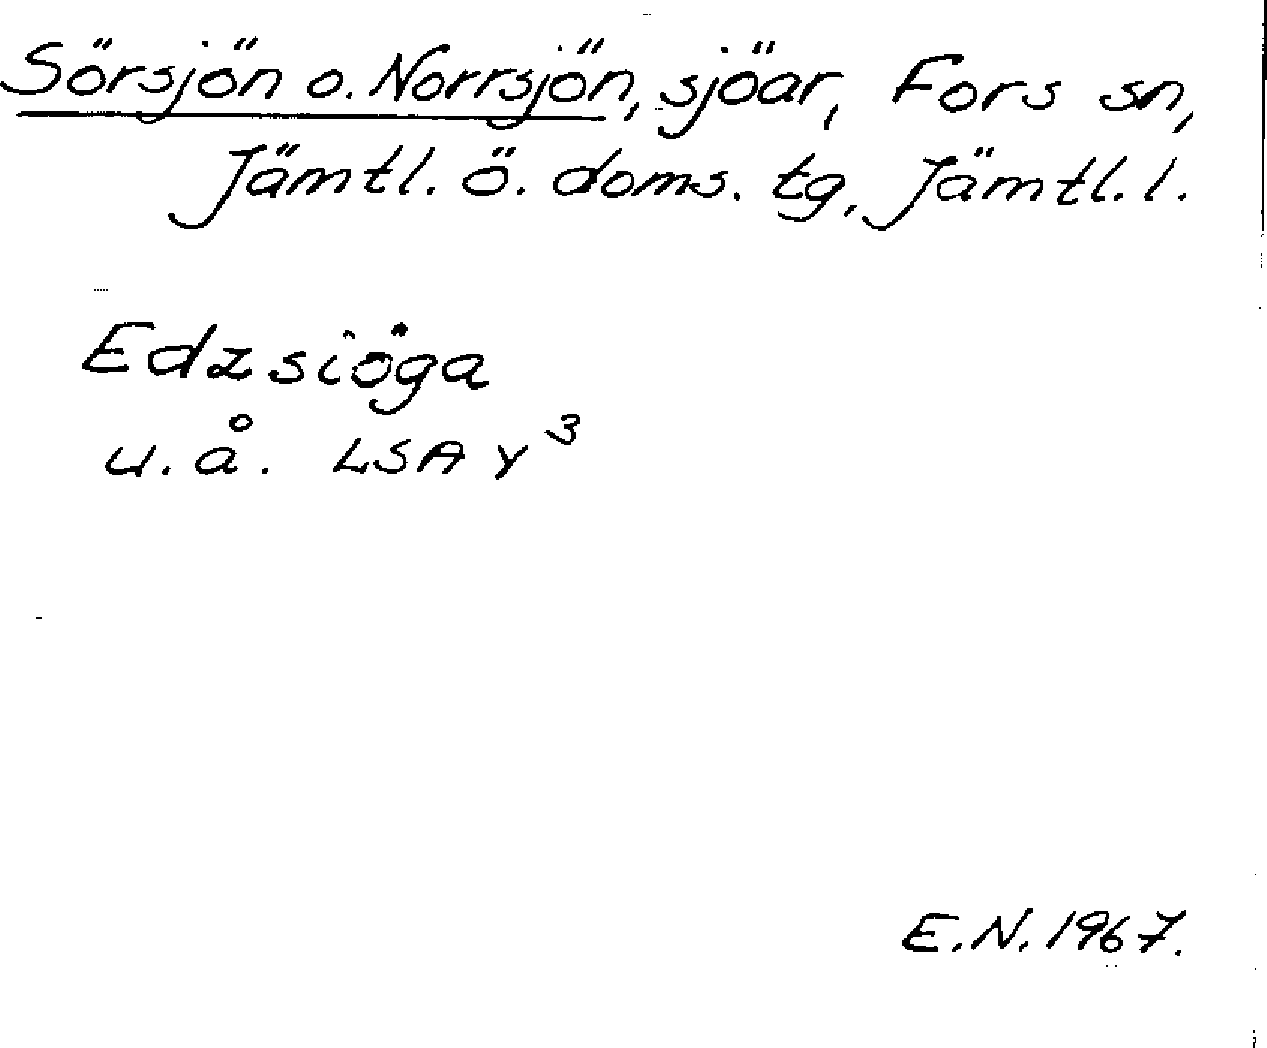 Sörsjön o. Norrsjön, sjöar, Fors sn,
Jämtl. ö. doms. tg, Jämtl. l.
Edzsiöga
u. å. LSA Y³
E.N. 1967.